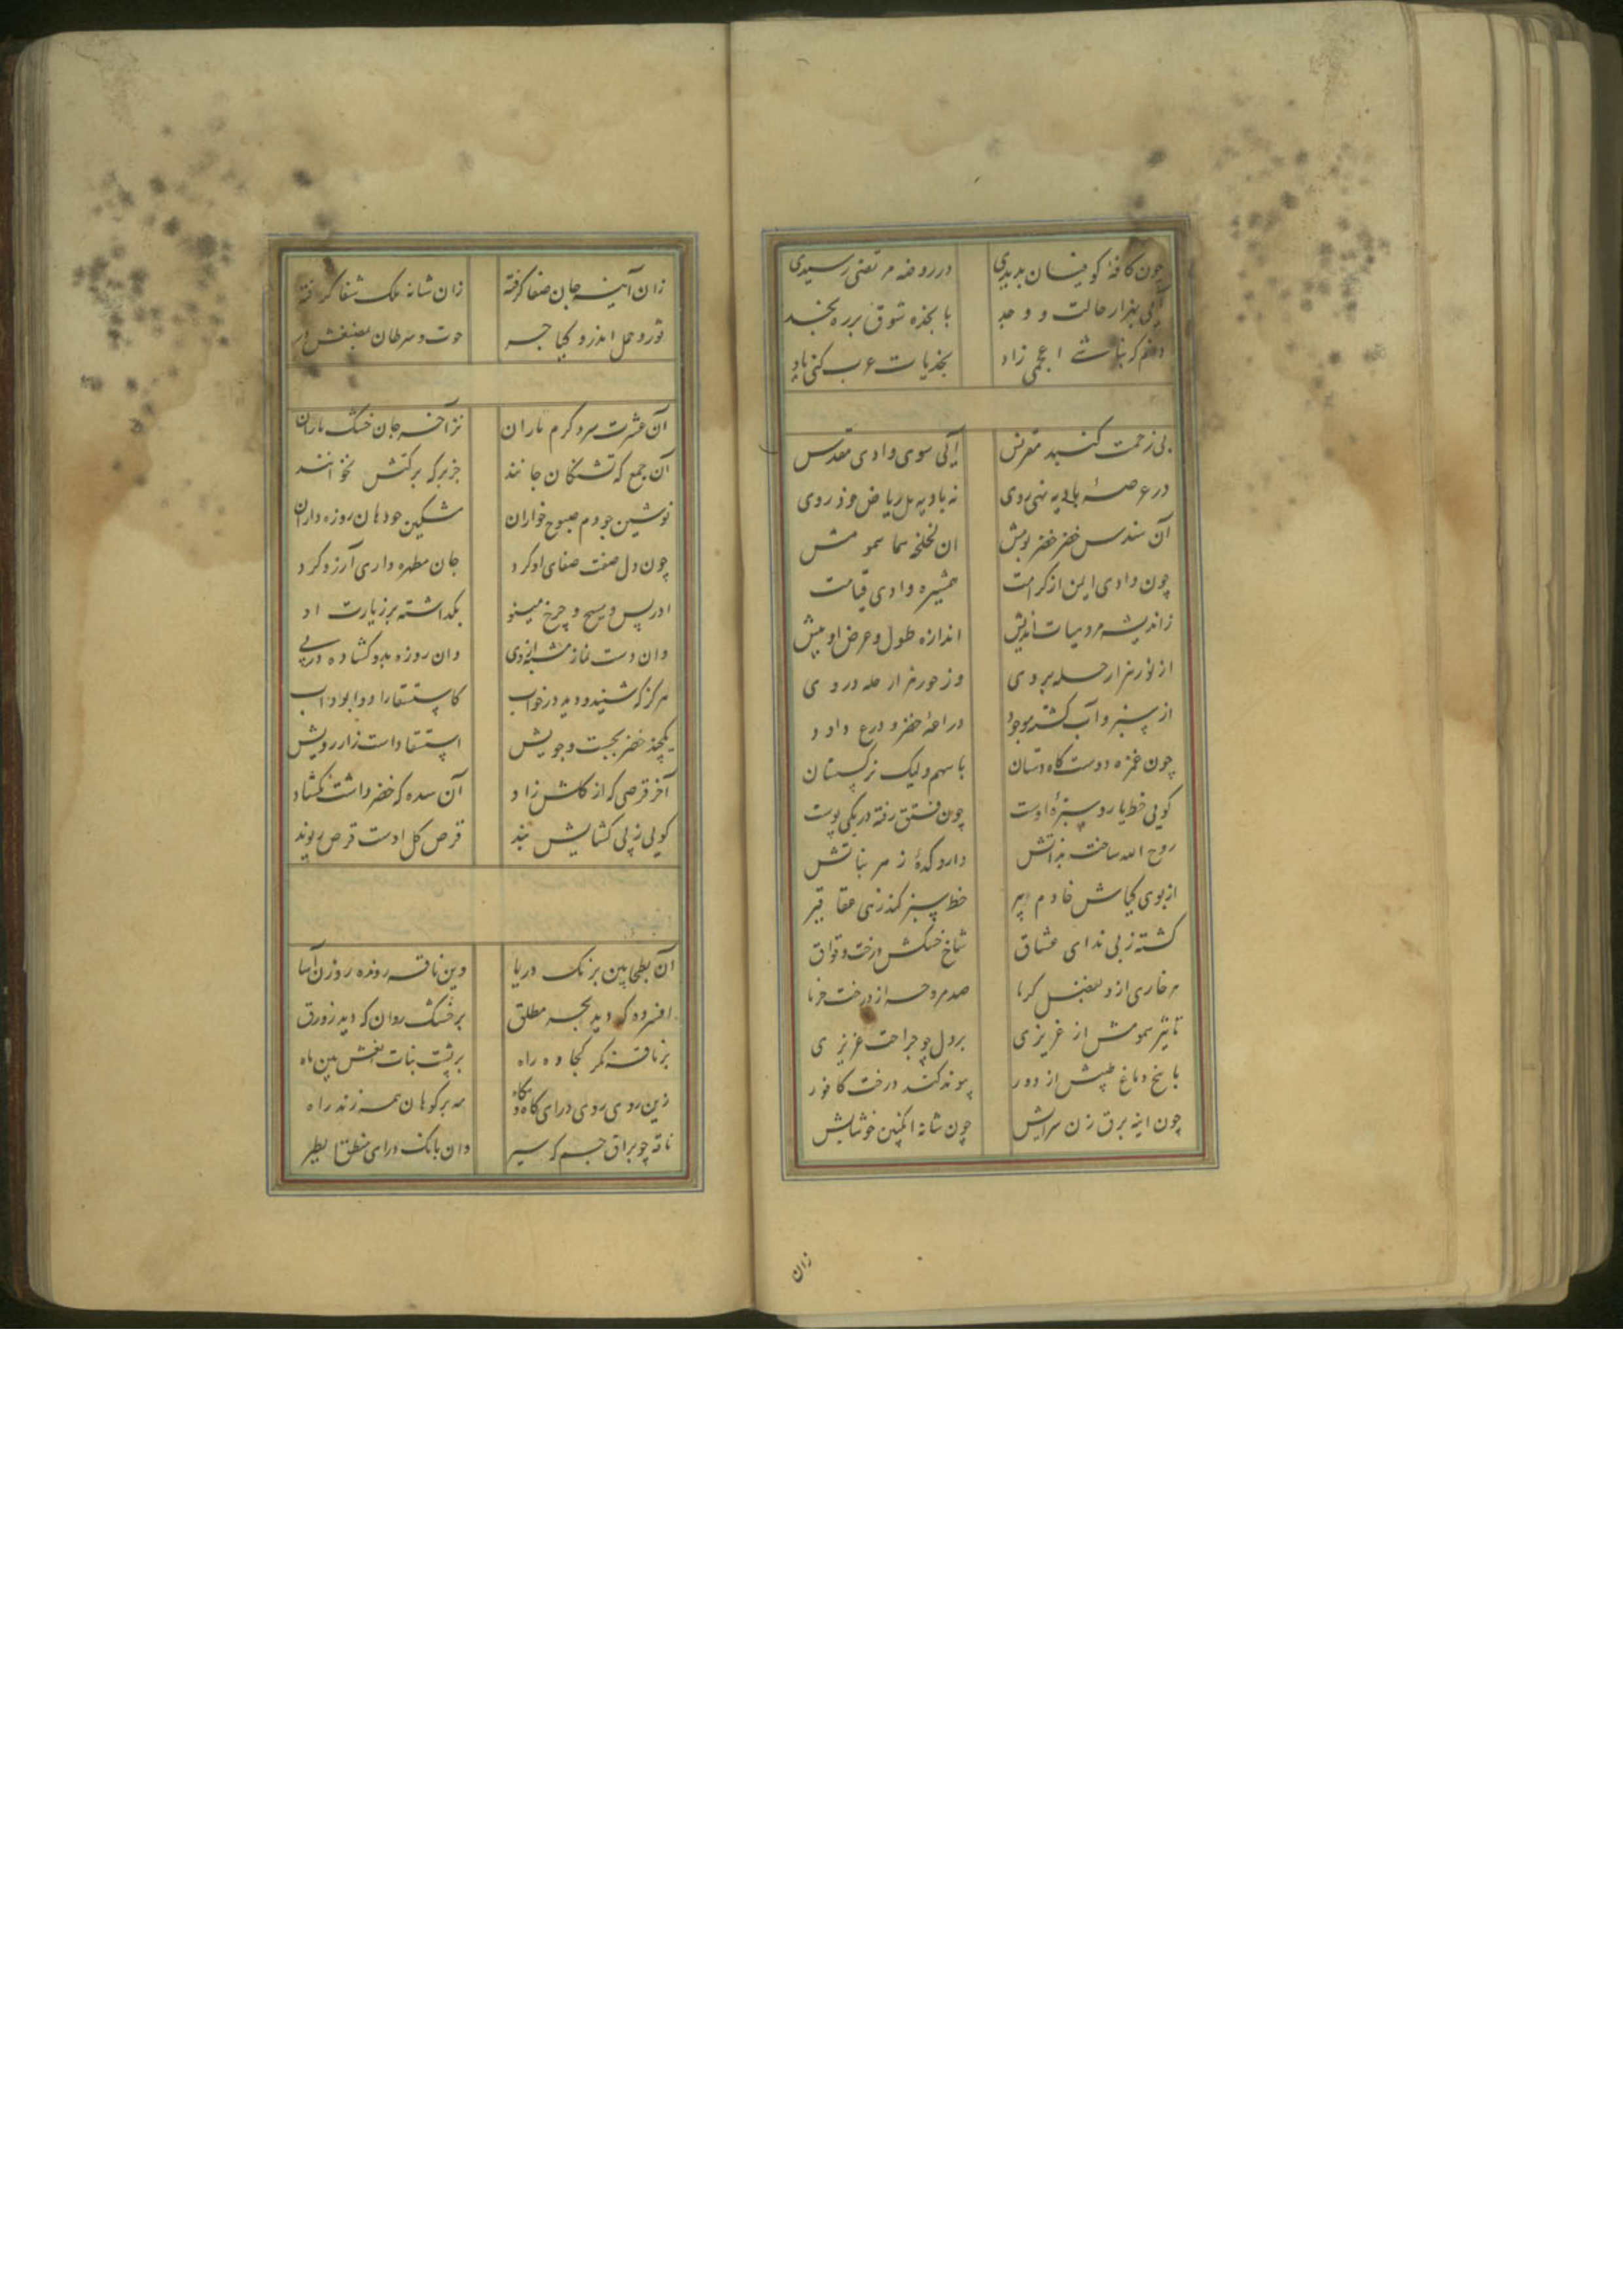 چون کافهٔ کوفیان بدیدی در روضه مرتضی رسیدی
آیی بهزار حالت و وجد با بجذه شوق بر ره نجد
دانم که نباشی اعجمی زاد نجدیات عرب کنی یاد
بی زحمت گنبد مقرنس آیی سوی وادی مقدس
در عرصهٔ بادیه نهی روی نه بادیه بل ریاض خوذ روی
آن سندس خضر خضر پوشش ان لخلخه سا سمومش
چون وادی ایمن از کرامت همشیره وادی قیامت
زاندیشه مرد بیات اندیش اندازه طول و عرض او بیش
از نور هزار حله بر وی وز حور هزار حله در وی
از سبزه و آب گشته موجود دراعهٔ خضر و درع داود
چون غمزه دوست گاه دستان با سهم ولیک نرگستان
کویی خط یار و سبزهٔ اوست چون فستق رفته در یکی پوست
روح الله ساخته بذاتش داروکدهٔ ز هر نباتش
از بوی کیاش خادم پیر خط سبز کند زهی عقاقیر
کشته ز پی ندای عشاق شاخ خشکش درخت وقواق
هر خاری ازو بفضل کرما صد مروحه از درخت خرما
تاثیر سمومش از غریزی بر دل چو جراحت عزیزی
با یخ دماغ طپش از دور پیوند کند درخت کافور
چون اینه برق زن سرابش چون شانه انکبین خوشابش
زان
زان آینه جان صفا گرفته زان شانه ملک شفا گرفته
ثور و حمل اندرو گیا چر حوت و سرطان بمصنعش در
آن عشرت سرد گرم یاران نز آخر جان خشک ماران
آن جمع که تشنگان جانند جز برکه برکتش نخوانند
نوشین چو دم صبوح خواران مشکین چو دهان روزه داران
چون دل صفت صفای او کرد جان مطهره داری آرزو کرد
ادریس و مسیح و چرخ مینو بگذاشته بر زیارت او
وان دست نماز شسته از وی وان روزه بدو گشاده در پی
هرگز که شنید و دید در خواب کاستسقا را دوا بود آب
یکچند خضر بجست و جویش استسقا داشت زارزویش
آخر قرصی که از گلش زاد آن سده که خضر داشت بگشاد
کویی ز پی گشایش بند قرص گل اوست قرص ریوند
آن بطحا بین برنگ دریا وین ناقه رونده روزن آسا
افسرده که دید بحر مطلق بر خشک روان که دید زورق
بر ناقه نگر کجاوه راه بر پشت بنات نعش بین ماه
زین روی روی درای گاه گاه مه بر کوهان همه زند راه
ناقه چو براق جسم گر سیر وان بانگ درای منطق الطیر